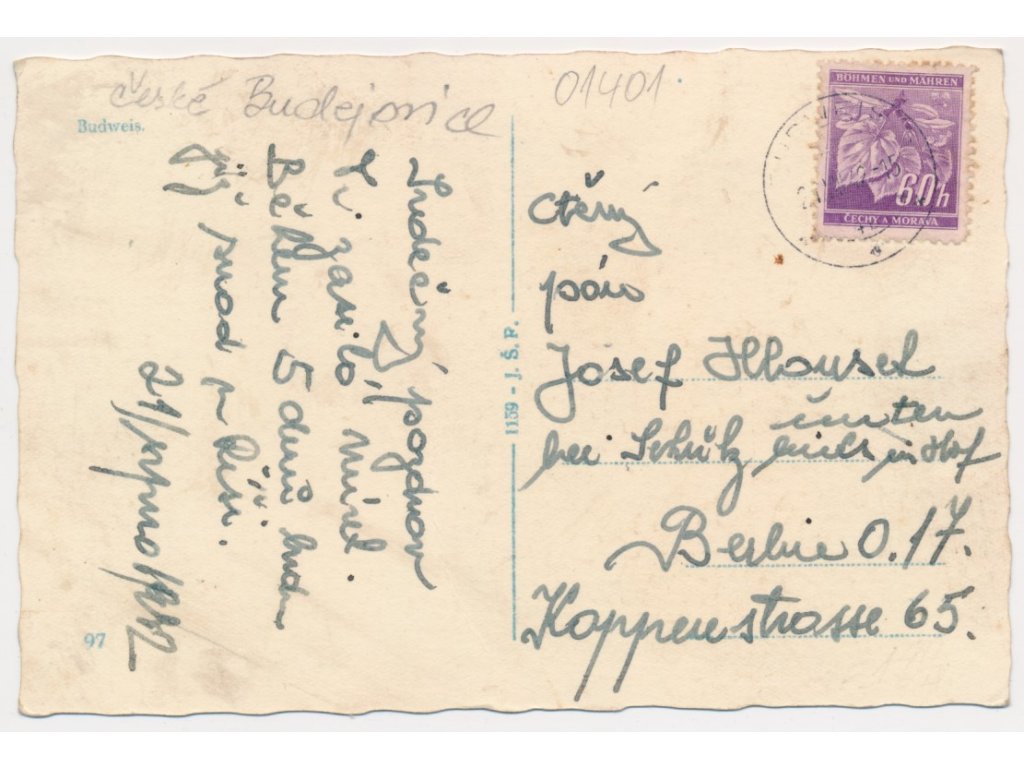 České Budejovice
01401
Budweis.
BÖHMEN UND MÄHREN
60h
ČECHY A MORAVA
Srdečný pozdrav
Ti zasílá,
Během 5 dnů budu
již snad v Říši.
21/srpna 1942
97
1159 - J. Š. F.
Ctěný
pán
Josef
unten
bei Schütz im Hof
Berlin O. 17.
Koppenstrasse 65.